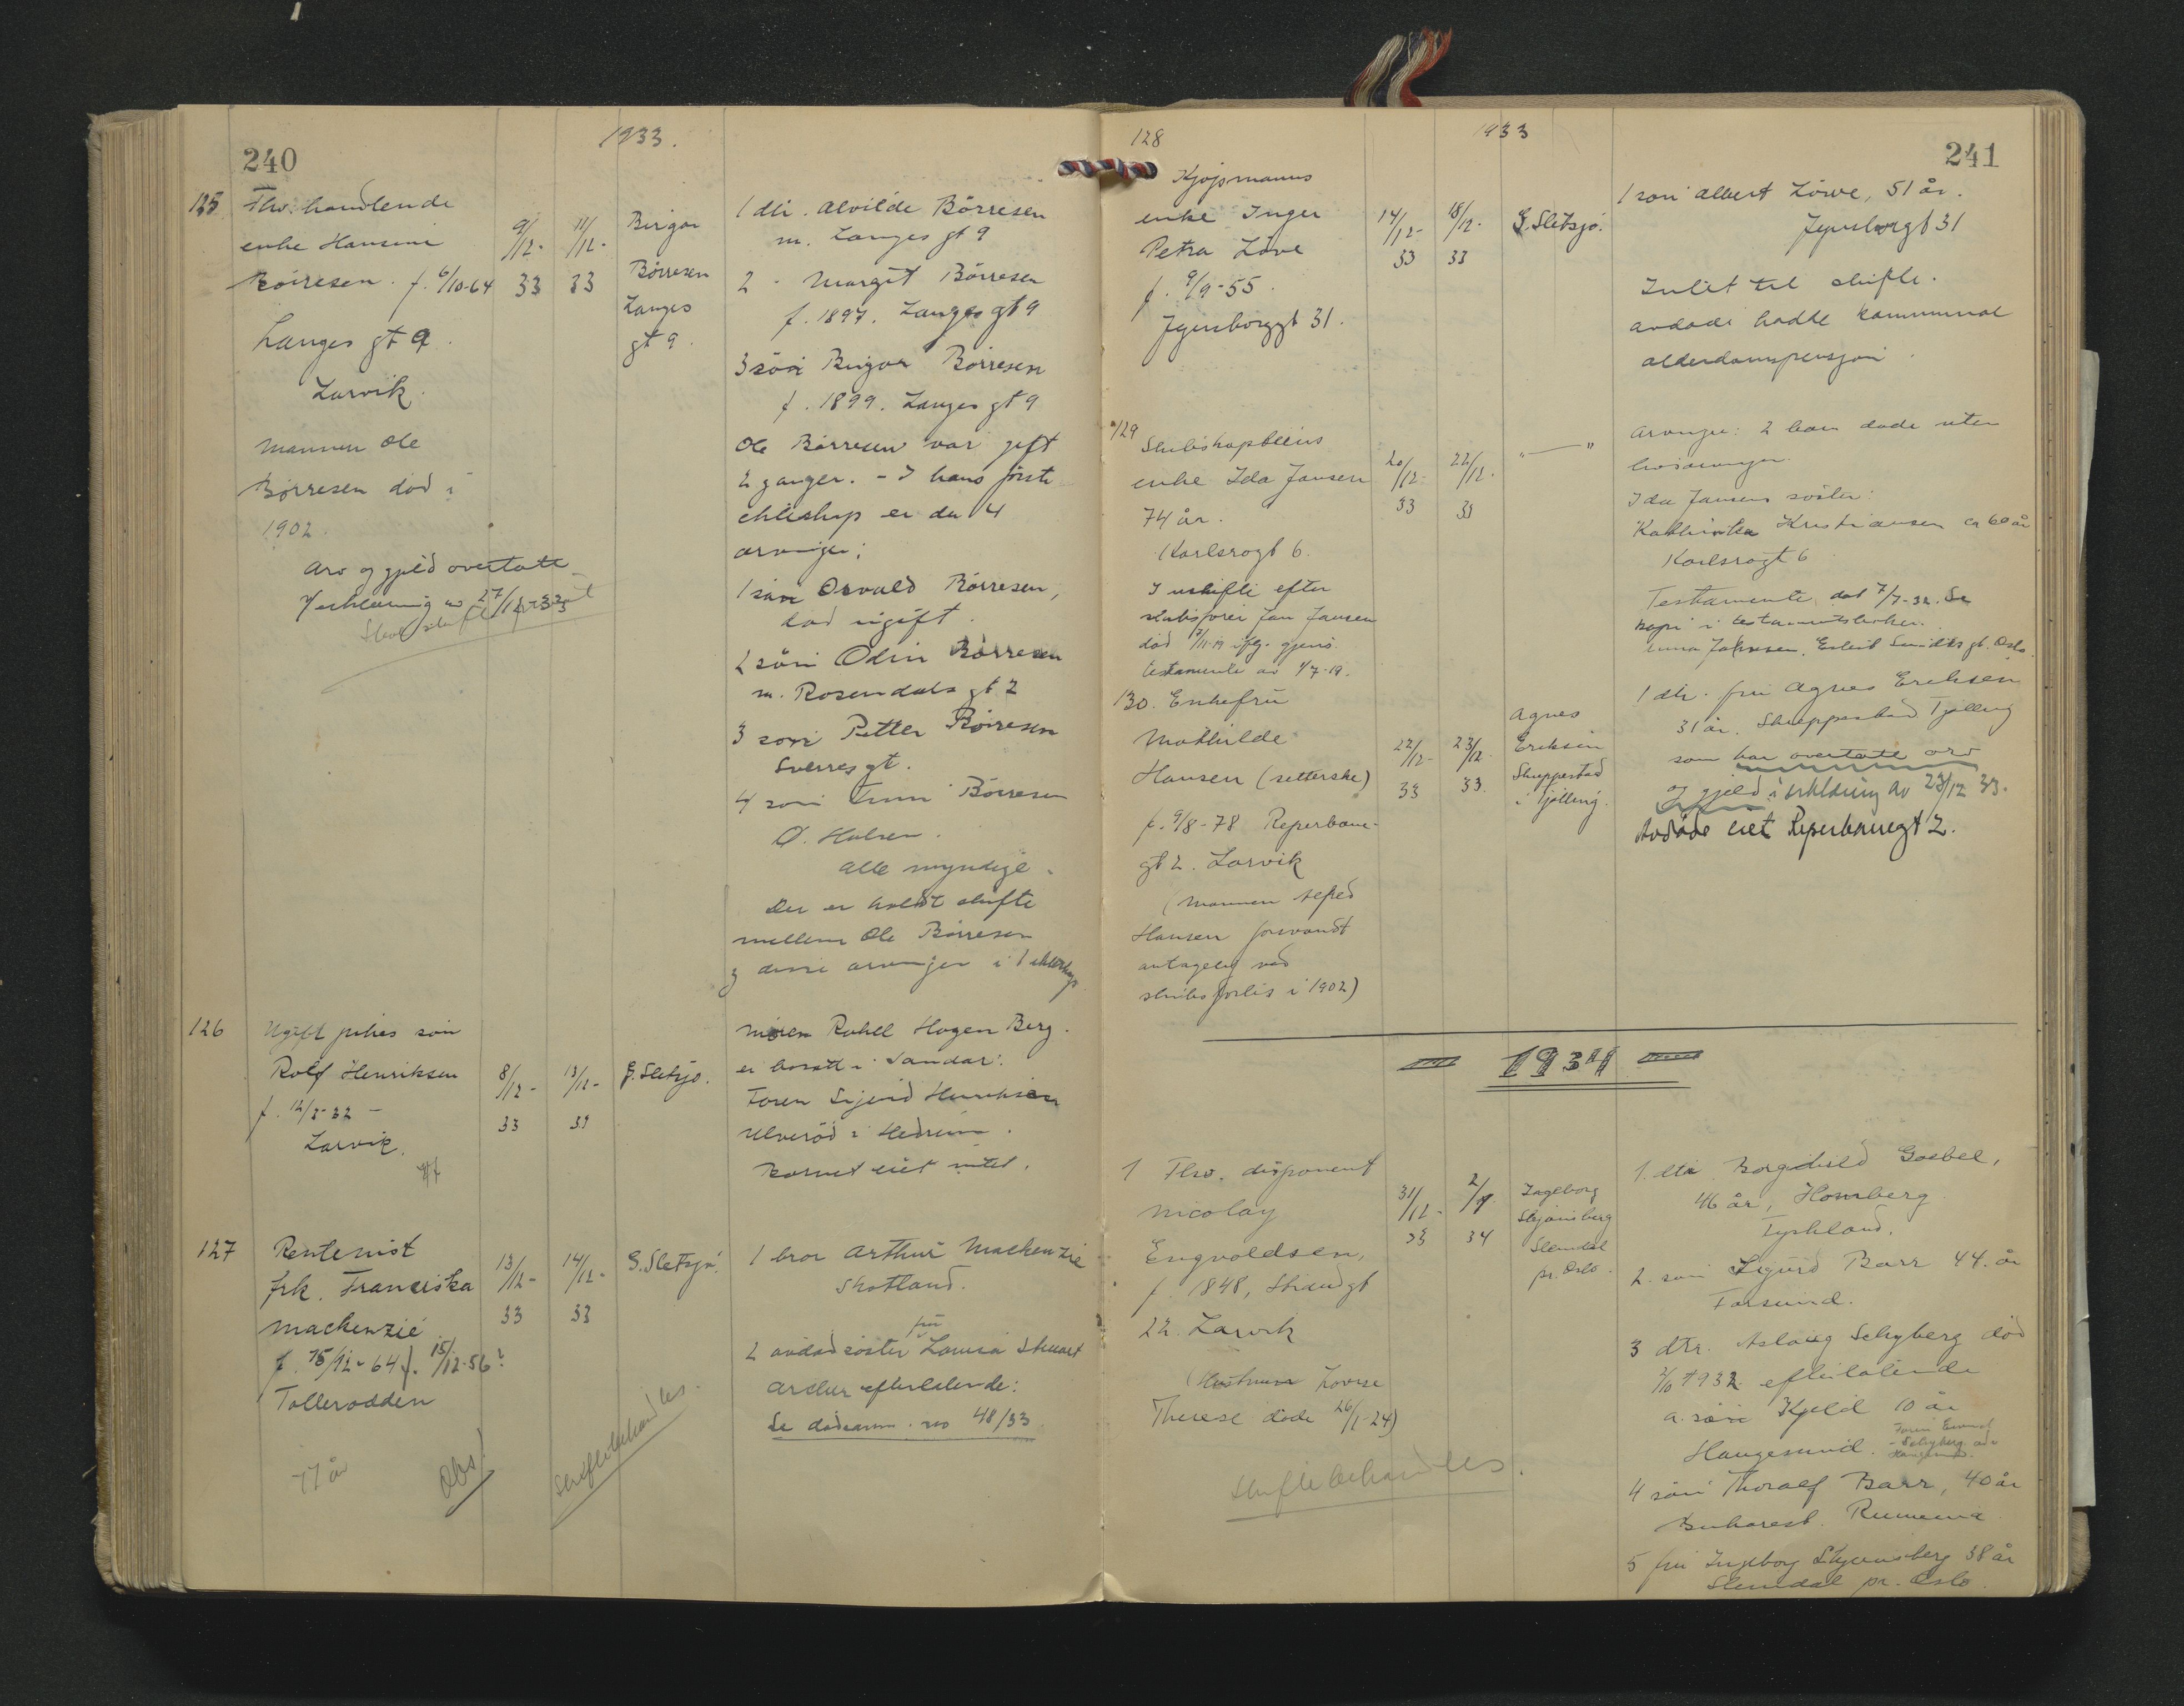 240
1933.
125 Fhv. handlende
enke Hansine
Börresen. f. 6/10-64
Langes gt 9.
Larvik.
Mannen Ole
Börresen död i
1902.
Arv og gjeld overtatt
erklæring av 27/12-33
9/12- 33
11/12- 33
Birger
Börresen
Langes
gt 9.
1 dtr. Alvilde Börresen
m. Langes gt 9
2 - Margit Börresen
f. 1897. Langes gt 9
3 sön Birger Börresen
f. 1899. Langes gt 9
Ole Börresen var gift
2 ganger. - I hans förste
ekteskap er der 4
arvinger:
1 sön Osvald Börresen,
död ugift.
2 sön Odin Börresen
m. Rosendals gt 2
3 sön Petter Börresen
Sverres gt.
4 sön Börresen
Ö. Halsen.
Alle myndige.
Der er holdt skifte
mellem Ole Börresen
og disse arvinger i 1 ekteskap
126 Ugift pikes sön
Rolf Henriksen
f. 12/5-32 -
Larvik.
8/12- 33
13/12- 33
G. Sletsjö.
Moren Rakel Hagen Berg.
er bosatt i Sandar.
Faren Sigurd Henriksen
Ulveröd i Hedrum.
Barnet eiet intet.
127 Rentenist
frk. Franciska
Mackenzie
f. 15/12-64 f. 15/12-56?
Tollerodden
77 år
Obs!
Skiftebehandles.
13/12- 33
14/12- 33
G. Sletsjö.
1 bror Arthur Mackenzie
Skotland.
fru
2 avdöd söster Lovisa Stuart
Archer efterlatende:
Se dödsanm. no 48/33
128
1933
241
Kjøpmanns
enke Inger
Petra Löve
f. 9/9-55.
Jegersborggt 31.
14/12- 33
18/12- 33
G. Sletsjö.
1 sön Albert Löwe, 51 år.
Jegersborggt 31
Intet til skifte.
Avdöde hadde kommunal
alderdomspensjon.
129 Skibskapteins
enke Ida Jansen
74 år.
Karlsrogt 6.
I uskifte efter
skibsförer Jan Jansen
död 7/11-19 iflg. gjens.
testamente av 1/7-19.
20/12- 33
22/12- 33
" — "
Arvinger: 2 barn döde uten
livsarvinger.
Ida Jansens söster:
Kathinka Kristiansen ca 60 år
Karlsrogt 6
Testamente dat 7/7-32. Se
kopi i testamentsboken.
130. Enkefru
Mathilde
Hansen (setterske)
f. 9/8-78 Reperbane-
gt 2. Larvik
(Mannen Alfred
Hansen forsvandt
antagelig ved
skibsforlis i 1902)
22/12- 33
23/12. 33.
Agnes
Eriksen
Skreppestad
i Tjölling.
1 dtr. fru Agnes Eriksen
31 år. Skreppestad Tjölling
som har overtatt arv
og gjeld i erklæring av 23/12 33.
Avdöde eiet Reperbanegt 2.
1934
1 Fhv. disponent
Nicolay
Engvoldsen,
f. 1848, Strandgt
22. Larvik
(Hustruen Lovise
Therese döde 26/1-24)
Skiftebehandles.
31/12- 33
2/1. 34
Ingeborg
Skjönsberg
Slemdal
pr. Oslo.
1. dtr. Borghild Goebel,
46 år, Homberg
Tyskland.
2. sön Sigurd Barr 44. år
Farsund.
3 dtr. Aslaug Schyberg död
2/10 1932 efterlatende
a. sön Kjeld 10 år
Haugesund.
4 sön Thoralf Barr, 40 år
Bukarest. Rumenia
5 fru Ingeborg Skjönsberg 38 år
Slemdal pr. Oslo.